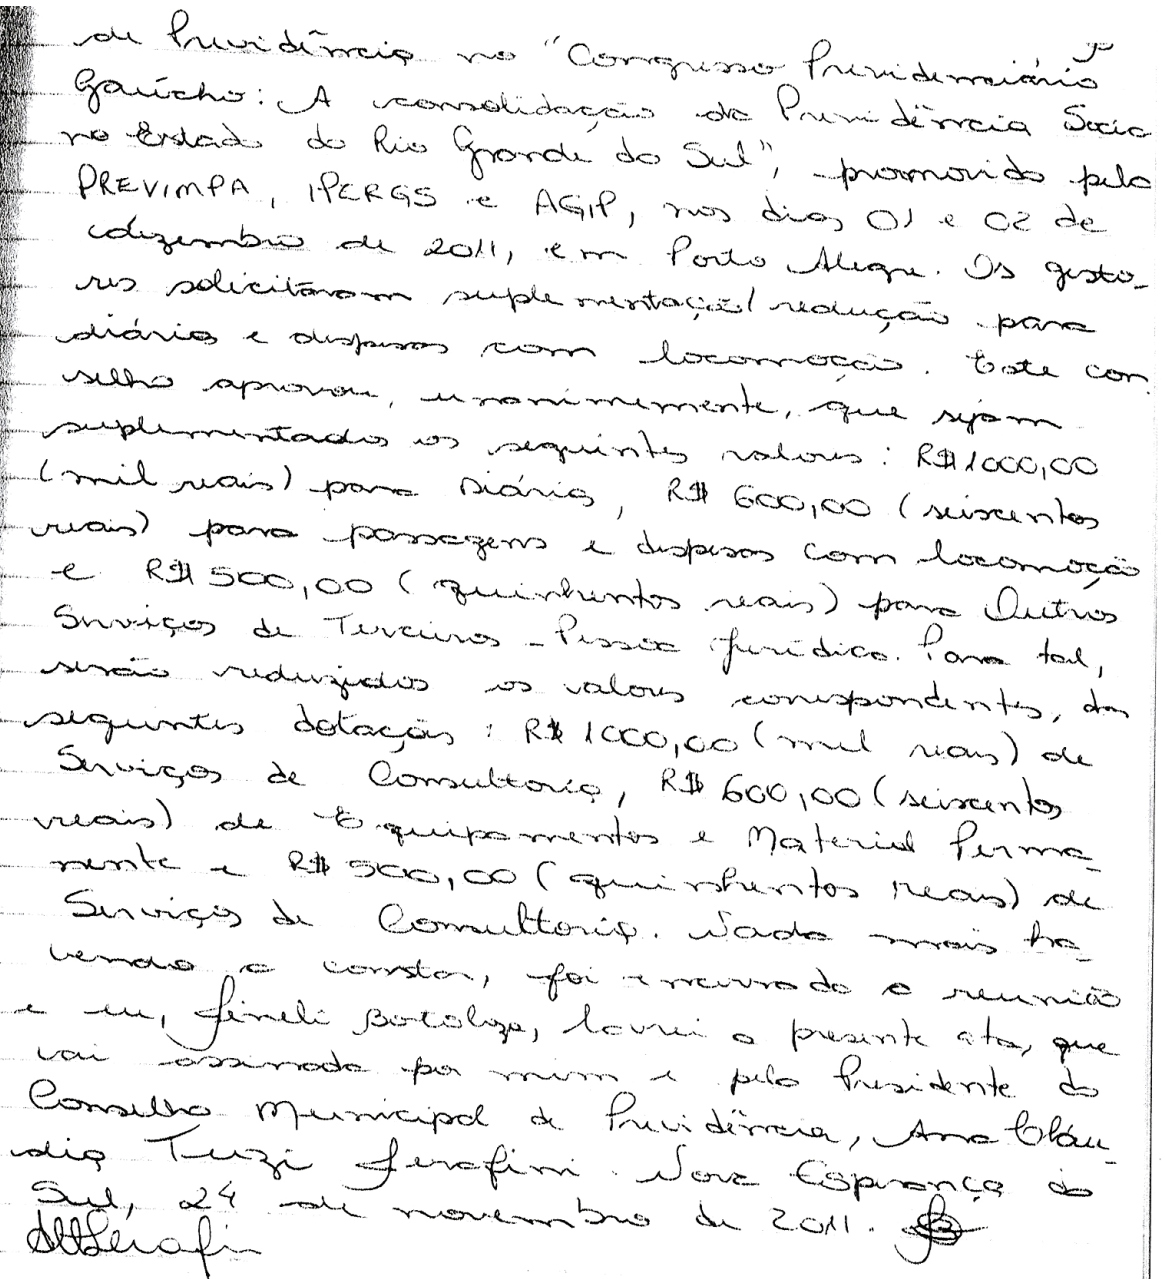 de Previdência no "Congresso Previdenciário
Gaúcho: A consolidação da Previdência Socia
no Estado do Rio Grande do Sul", promovido pelo
PREVIMPA, IPERGS e AGIP, nos dias 01 e 02 de
dezembro de 2011, em Porto Alegre. Os gesto-
res solicitaram suplementação/redução para
diária e despesas com locomoção. Este con
selho aprovou, unanimemente, que sejam
suplementados os seguintes valores: R$ 1000,00
(mil reais) para Diária, R$ 600,00 (seiscentos
reais) para passagens e despesas com locomoção
e R$ 500,00 (quinhentos reais) para Outros
Serviços de Terceiros - Pessoa Jurídica. Para tal,
serão reduzidos os valores correspondentes, das
seguintes dotações: R$ 1000,00 (mil reais) de
Serviços de Consultoria, R$ 600,00 (seiscentos
reais) de Equipamentos e Material Perma-
nente e R$ 500,00 (quinhentos reais) de
Serviços de Consultoria. Nada mais ha-
vendo a constar, foi encerrada a reunião
e eu, lavrei a presente ata, que
vai assinada por mim e pelo Presidente do
Conselho Municipal de Previdência, Ana Cláu-
dia Tuzi Serafini. Nova Esperança do
Sul, 24 de novembro de 2011.